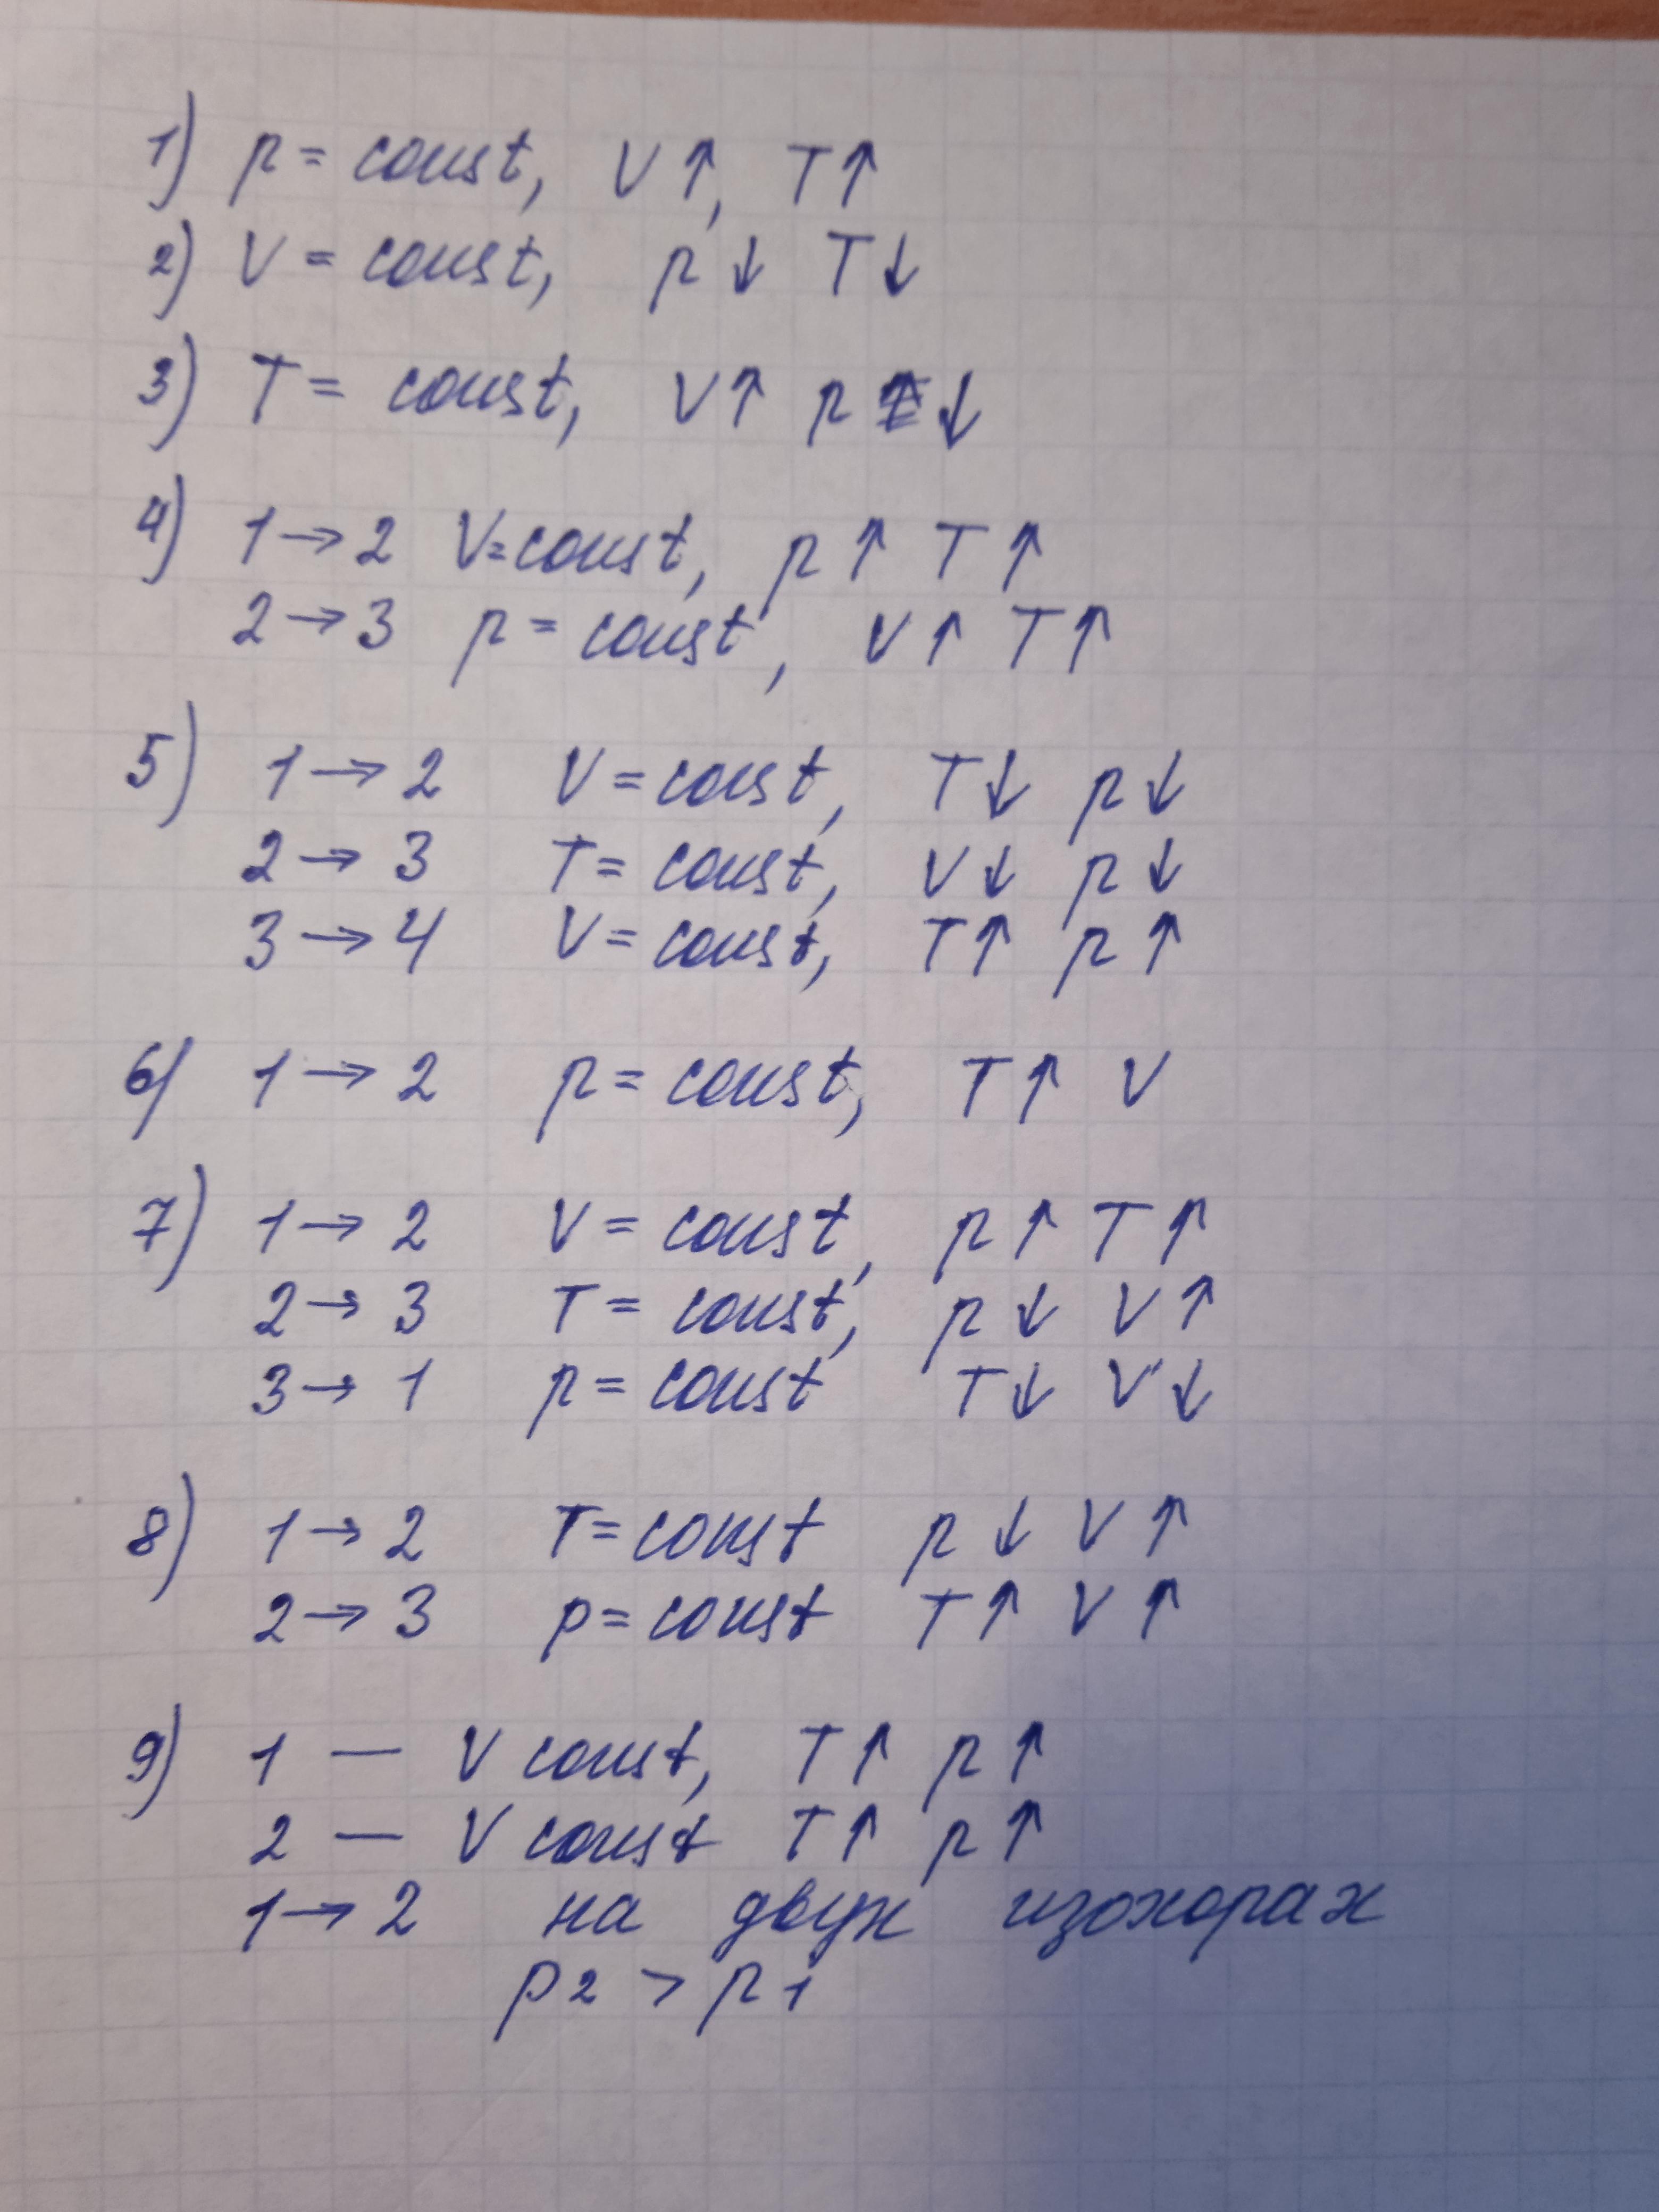 1) p = const, V↑, T↑
2) V = const, p↓ T↓
3) T = const, V↑ p ↓
4) 1→2 V=const, p↑ T↑
2→3 p = const, V↑ T↑
5) 1→2 V = const, T↓ p↓
2→3 T = const, V↓ p↓
3→4 V = const, T↑ p↑
6) 1→2 p = const, T↑ V
7) 1→2 V = const, p↑ T↑
2→3 T = const, p↓ V↑
3→1 p = const T↓ V↓
8) 1→2 T = const p↓ V↑
2→3 p = const T↑ V↑
9) 1 — V const, T↑ p↑
2 — V const T↑ p↑
1→2 на двух изохорах
p2 > p1